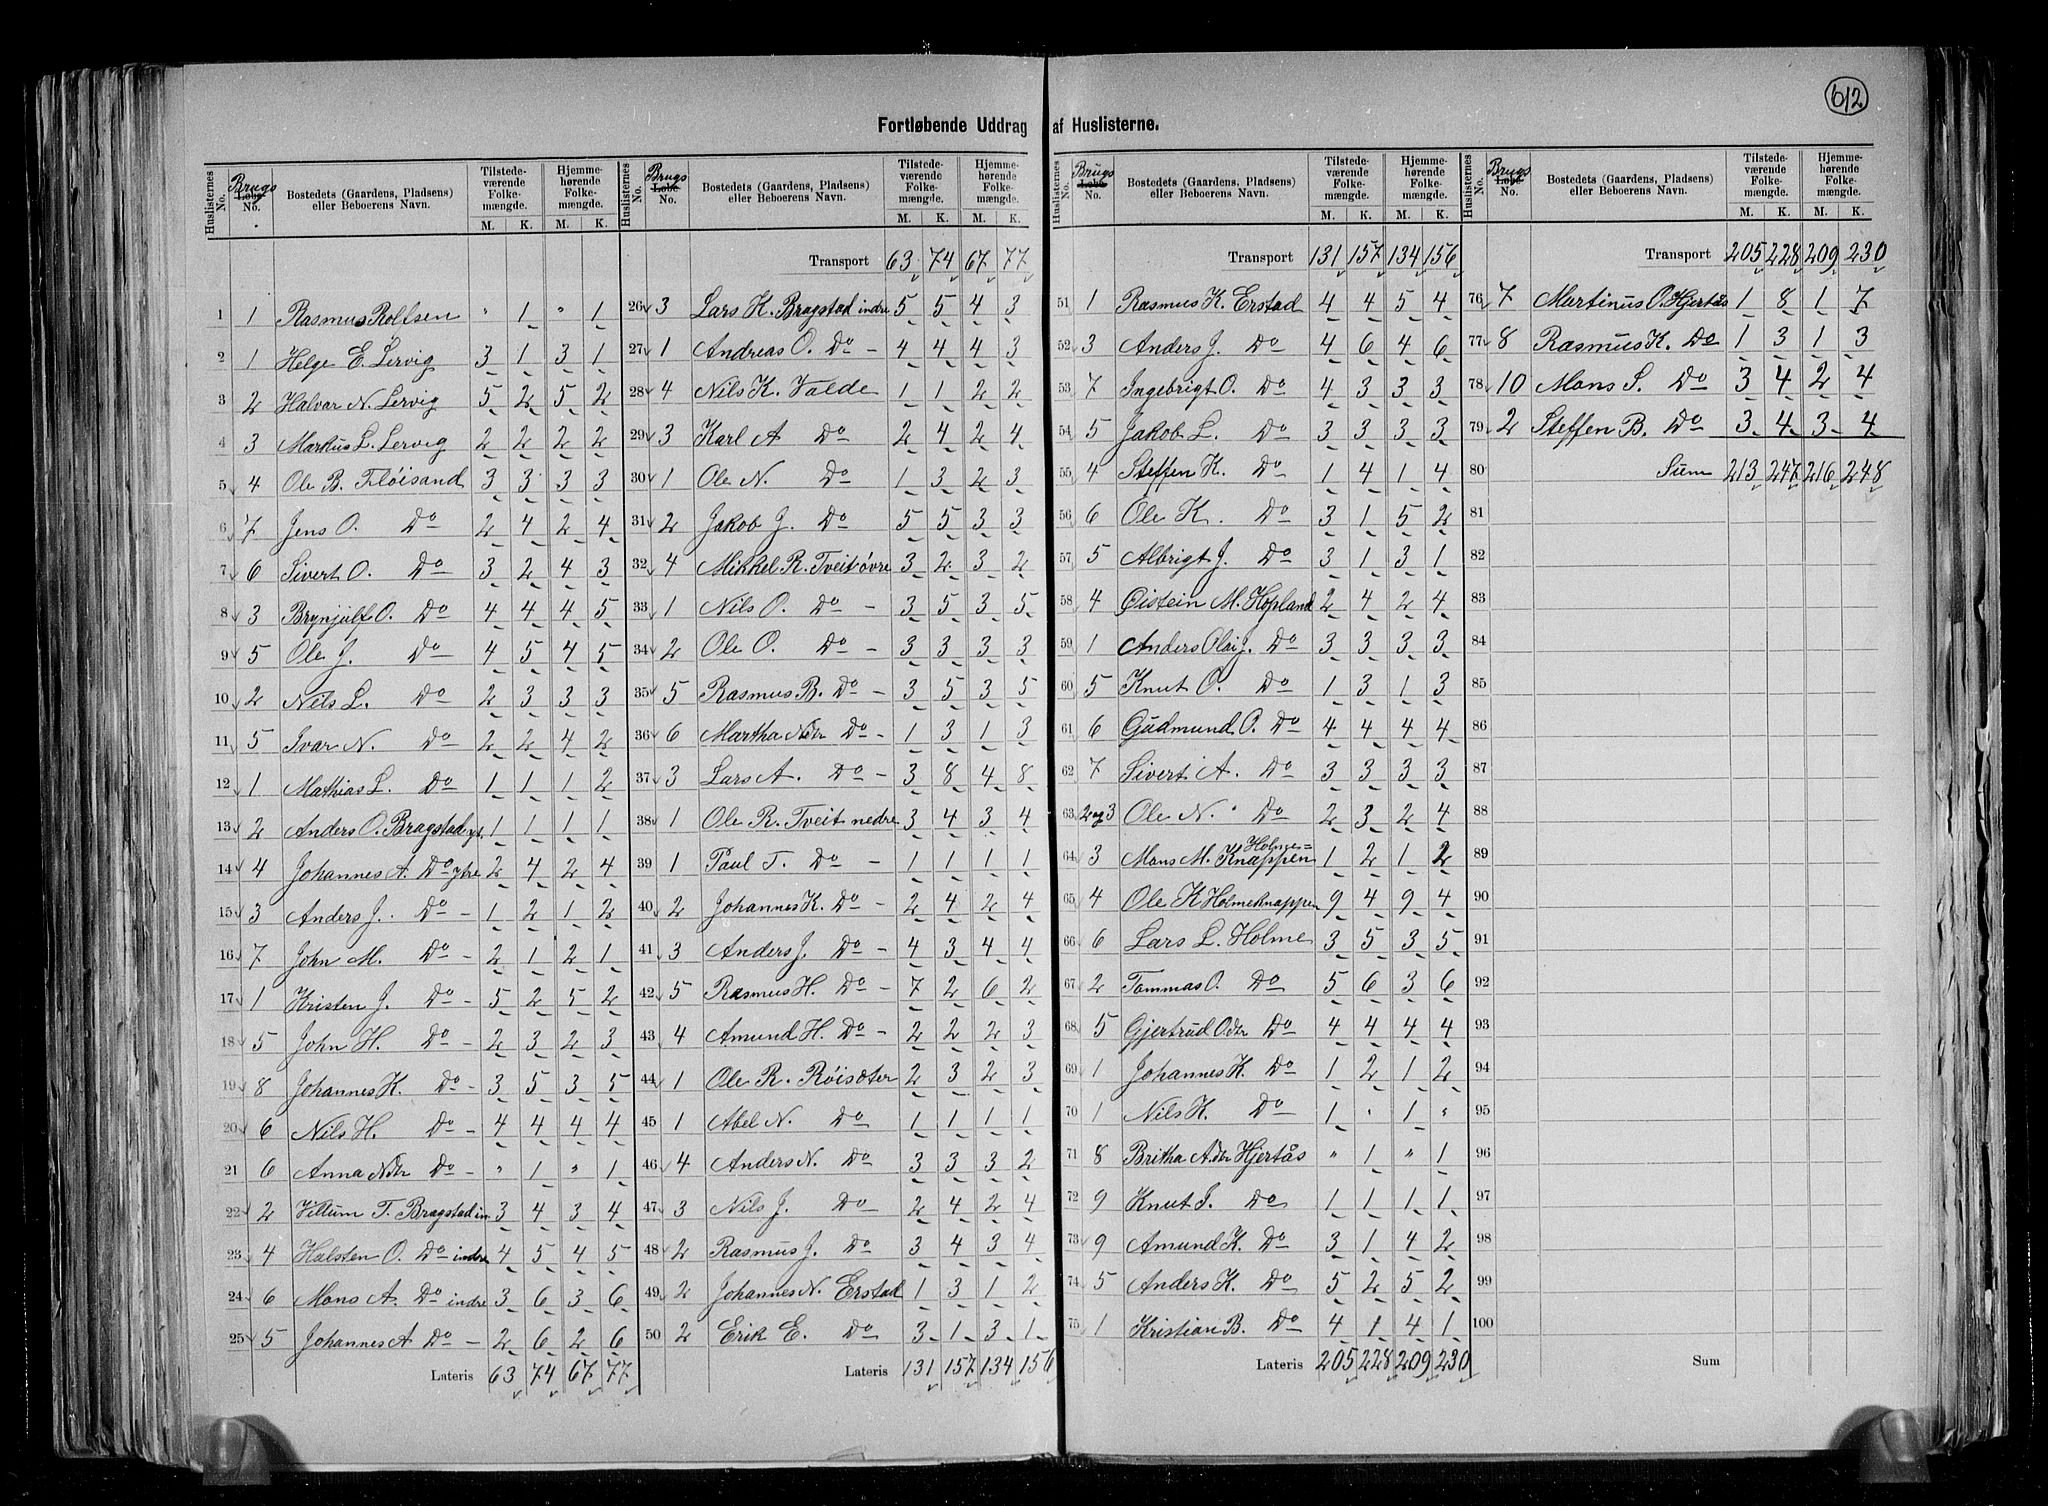 612
Fortløbende Uddrag af Huslisterne.
Huslisternes No. Brugs Løbe No. Bostedets (Gaardens, Pladsens) eller Beboerens Navn. Tilstedeværende Folkemængde. M. K. Hjemmehørende Folkemængde. M. K.
1 1 Rasmus Rolfsen " 1 " 1
2 1 Helge E. Lervig 3 1 3 1
3 2 Halvar N. Lervig 5 2 5 2
4 3 Markus L. Lervig 2 2 2 2
5 4 Ole B. Fløisand 3 3 3 3
6 7 Jens O. Do 2 4 2 4
7 6 Sivert O. Do 3 2 4 3
8 3 Brynjulf O. Do 4 4 4 5
9 5 Ole J. Do 4 5 4 5
10 2 Nils L. Do 2 3 3 3
11 5 Ivar N. Do 2 2 4 2
12 1 Mathias L. Do 1 1 1 2
13 2 Anders O. Bragstad yt. 1 1 1 1
14 4 Johannes A. Do ytre 2 4 2 4
15 3 Anders J. Do - 1 2 1 2
16 7 John M. Do - 2 1 2 1
17 1 Kristen J. Do - 5 2 5 2
18 5 John H. Do - 2 3 2 3
19 8 Johannes K. Do - 3 5 3 5
20 6 Nils H. Do - 4 4 4 4
21 6 Anna Ndtr Do - " 1 " 1
22 2 Villum T. Bragstad in. 3 4 3 4
23 4 Halsten O. Do indre 4 5 4 5
24 6 Mons A. Do indre 3 6 3 6
25 5 Johannes A Do - 2 6 2 6
Lateris 63 74 67 77
Huslisternes No. Brugs Løbe No. Bostedets (Gaardens, Pladsens) eller Beboerens Navn. Tilstedeværende Folkemængde. M. K. Hjemmehørende Folkemængde. M. K.
Transport 63 74 67 77
26 3 Lars K. Bragstad indre 5 5 4 3
27 1 Andreas O. Do - 4 4 4 3
28 4 Nils K. Valde 1 1 2 2
29 3 Karl A Do 2 4 2 4
30 1 Ole N. Do 1 3 2 3
31 2 Jakob J. Do 5 5 3 3
32 4 Mikkel R. Tveit øvre 3 2 3 2
33 1 Nils O. Do - 3 5 3 5
34 2 Ole O. Do - 3 3 3 3
35 5 Rasmus B. Do - 3 5 3 5
36 6 Martha Ndtr Do - 1 3 1 3
37 3 Lars A. Do - 3 8 4 8
38 1 Ole R. Tveit nedre 3 4 3 4
39 1 Paul T. Do - 1 1 1 1
40 2 Johannes K. Do - 2 4 2 4
41 3 Anders J. Do - 4 3 4 4
42 5 Rasmus H. Do - 7 2 6 2
43 4 Amund H. Do - 2 2 2 3
44 1 Ole R. Røisæter 2 3 2 3
45 1 Abel N. Do 1 1 1 1
46 4 Anders N. Do 3 3 3 2
47 3 Nils J. Do 2 4 2 4
48 2 Rasmus J. Do 3 4 3 4
49 2 Johannes N. Erstad 1 3 1 2
50 2 Erik E. Do 3 1 3 1
Lateris 131 157 134 156
Huslisternes No. Brugs Løbe No. Bostedets (Gaardens, Pladsens) eller Beboerens Navn. Tilstedeværende Folkemængde. M. K. Hjemmehørende Folkemængde. M. K.
Transport 131 157 134 156
51 1 Rasmus K. Erstad 4 4 5 4
52 3 Anders J. Do 4 6 4 6
53 7 Ingebrigt O. Do 4 3 3 3
54 5 Jakob L. Do 3 3 3 3
55 4 Steffen K. Do 1 4 1 4
56 6 Ole K. Do 3 1 5 2
57 5 Albrigt J. Do 3 1 3 1
58 4 Øistein M. Hopland 2 4 2 4
59 1 Anders Olai J. Do 3 3 3 3
60 5 Knut O. Do 1 3 1 3
61 6 Gudmund O. Do 4 4 4 4
62 7 Sivert A. Do 3 3 3 3
63 2 og 3 Ole N. Do 2 3 2 4
64 3 Mons M. Holme= Knappen 1 2 1 2
65 4 Ole K Holmeknappen 9 4 9 4
66 6 Lars L. Holme 3 5 3 5
67 2 Tommas O. Do 5 6 3 6
68 5 Gjertrud Odtr Do 4 4 4 4
69 1 Johannes K. Do 1 2 1 2
70 1 Nils K. Do 1 " 1 "
71 8 Britha Adtr Hjertås " 1 " 1
72 9 Knut S. Do 1 1 1 1
73 9 Amund K. Do 3 1 4 2
74 5 Anders K. Do 5 2 5 2
75 1 Kristian B. Do 4 1 4 1
Lateris 205 228 209 230
Huslisternes No. Brugs Løbe No. Bostedets (Gaardens, Pladsens) eller Beboerens Navn. Tilstedeværende Folkemængde. M. K. Hjemmehørende Folkemængde. M. K.
Transport 205 228 209 230
76 7 Martinus O. Hjertås 1 8 1 7
77 8 Rasmus K. Do 1 3 1 3
78 10 Mons S. Do 3 4 2 4
79 2 Steffen B. Do 3 4 3 4
80 Sum 213 247 216 248
81
82
83
84
85
86
87
88
89
90
91
92
93
94
95
96
97
98
99
100
Sum